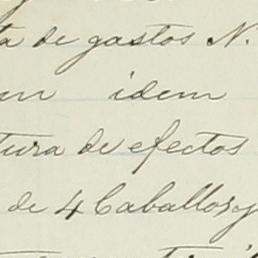 ta de gastos N.
en idem
tura de efectos
de 4 Caballos y